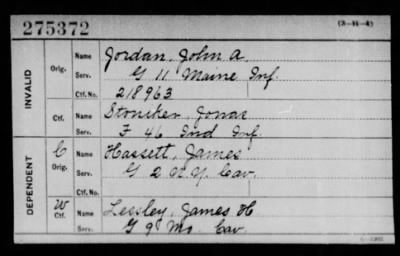 275372
(3-H-4)
INVALID
Orig.
Name Jordan, John A.
Serv. G 11 Maine Inf.
Ctf. No. 218963
Ctf.
Name Stoniker, Jonas
Serv. F 46 Ind Inf.
DEPENDENT
C
Orig.
Name Hassett, James
Serv. G 2 N.Y. Cav.
Ctf. No.
W
Ctf.
Name Leesley, James H
Serv. G 9 Mo. Cav.